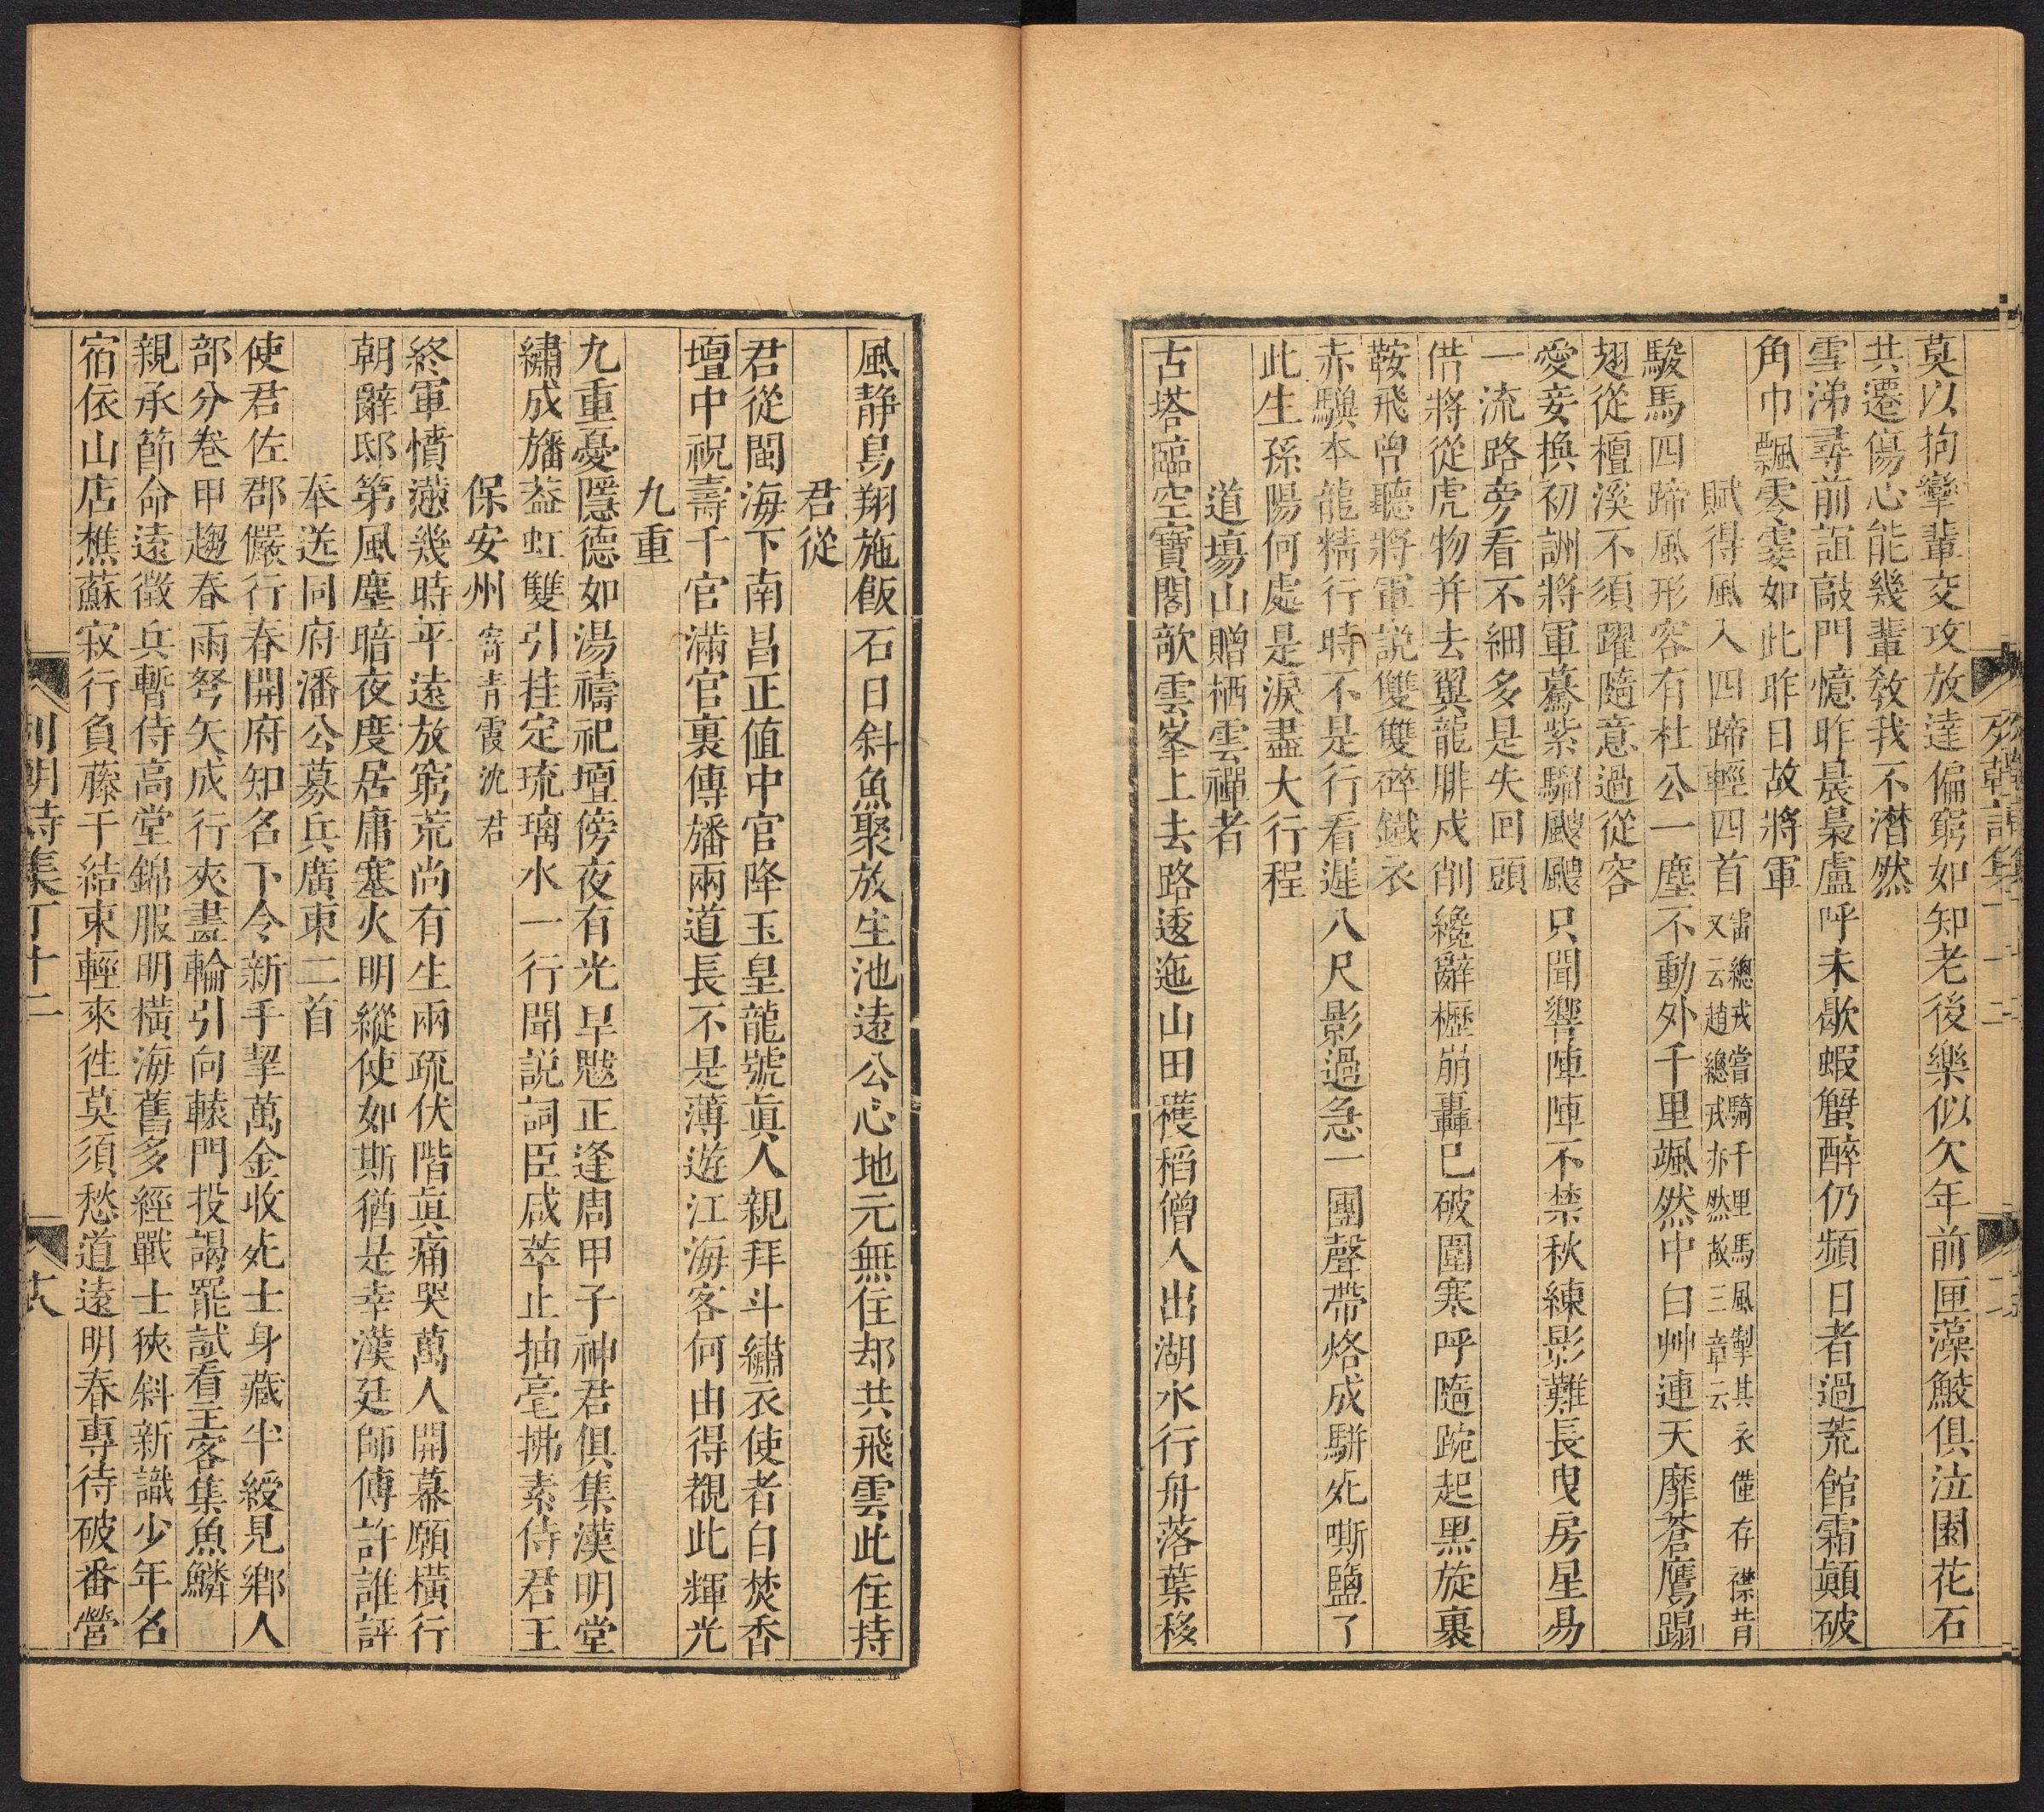 莫以拘攣輩交攻放達偏窮如知老後樂似欠年前匣藻鮫俱泣園花石
共遷傷心能幾輩敎我不潸然
雪涕尋前誼敲門憶昨晨梟盧呼未歇蝦蟹醉仍頻日者過荒館霜顚破
角巾飄零霎如此昨日故將軍
賦得風入四蹄輕四首雷總戎嘗騎千里馬風掣其衣僅存襟昔
又云趙總戎亦然故三章云
駿馬四蹄風形容有杜公一塵不動外千里颯然中白艸連天靡蒼鷹蹋
翅從檀溪不須躍隨意過從容
愛妾換初詶將軍驀紫騮颼颼只聞響陣陣不禁秋練影難長曳房星易
一流路旁看不細多是失回頭
借將從虎物并去翼龍腓戍削纔辭櫪崩轟已破圍寒呼隨踠起黑旋裹
鞍飛曾聽將軍說雙雙碎鐵衣
赤驥本龍精行時不是行看遲八尺影過急一團聲帶烙成騈死嘶鹽了
此生孫陽何處是淚盡大行程
道塲山贈栖雲禪者
古塔臨空寶閣欹雲峯上去路逶迤山田穫稻僧人出湖水行舟落葉移
風静鳥翔施飯石日斜魚聚放生池遠公心地元無住却共飛雲此住持
君從
君從閩海下南昌正值中官降玉皇龍號眞人親拜斗繡衣使者自焚香
壇中祝壽千官滿官裏傳旛兩道長不是薄遊江海客何由得覩此輝光
九重
九重憂隱德如湯禱祀壇傍夜有光旱魃正逢周甲子神君俱集漢明堂
繡成旛葢虹雙引挂定琉璃水一行聞説詞臣咸萃止抽毫拂素侍君王
保安州寄青霞沈君
終軍憤懣幾時平遠放窮荒尚有生兩疏伏階眞痛哭萬人開幕願橫行
朝辭邸第風塵暗夜度居庸塞火明縱使如斯猶是幸漢廷師傅許誰評
奉送同府潘公募兵廣東二首
使君佐郡儼行春開府知名下令新手挈萬金收死士身藏半綬見鄕人
部分巻甲趨春雨弩矢成行夾畫輪引向轅門投謁罷試看主客集魚鱗
親承節命遠徵兵暫侍高堂錦服明橫海舊多經戰士狹斜新識少年名
宿依山店樵蘇寂行負藤干結束輕來徃莫須愁道遠明春專待破番營
列朝詩集丁十二